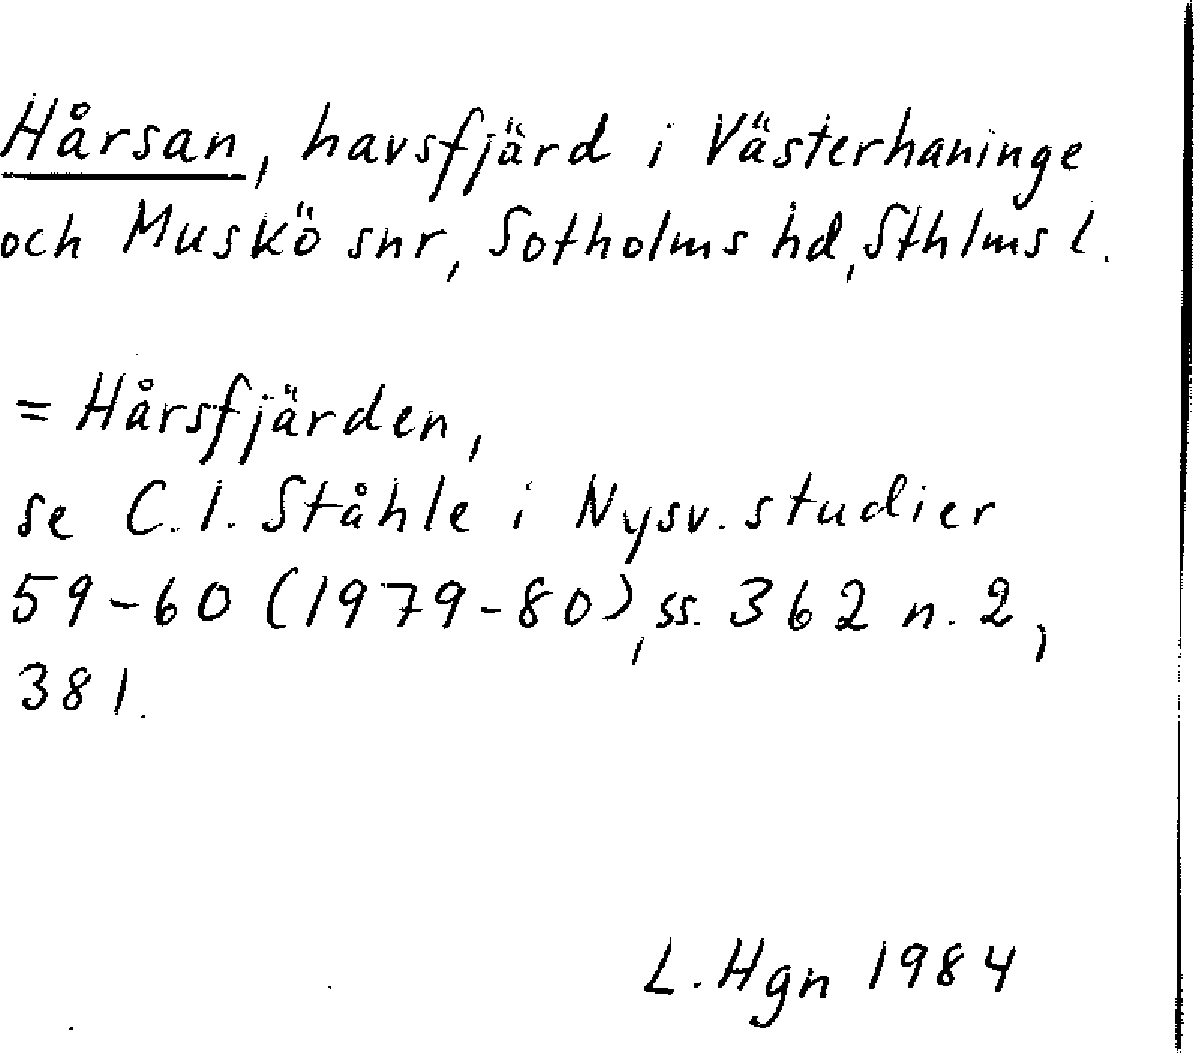 Hårsan, havsfjärd i Västerhaninge
och Muskö snr, Sotholms hd, Sthlms l.
= Hårsfjärden,
se C.I. Ståhle i Nysv. studier
59-60 (1979-80), ss. 362 n. 2,
381.
L. Hgn 1984